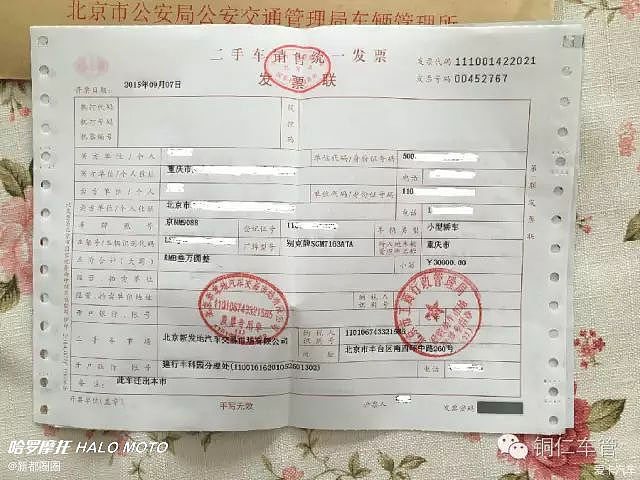 北京市公安局公安交通管理局车辆管理所
二手车销售统一发票
发票联
发票代码 111001422021
发票号码 00452767
开票日期: 2015年09月07日
机打代码
机打号码
机器编号
税控码
买方单位/个人
单位代码/身份证号码 500
买方单位/个人住址 重庆市 电话
卖方单位/个人 单位代码/身份证号码 110
卖方单位/个人住址 北京市 电话 1
车牌照号 京NM9088 登记证号 11 车辆类型 小型轿车
车架号/车辆识别代码 厂牌型号 别克牌SGM7163ATA 转入地车辆管理所名称 重庆市
车价合计(大写) RMB叁万圆整 小写 ¥30000.00
经营、拍卖单位
经营、拍卖单位地址 纳税人识别号
开户银行、账号 电话
二手车市场 北京新发地汽车交易市场有限公司 纳税人识别号 110106743321585
地址 北京市丰台区南四环中路260号
开户银行、账号 建行丰科园分理处(11001616201052501302) 电话
备注: 此车迁出本市
开票单位(盖章) 手写无效 开票人 发票密码
第一联 发票联
110106743321585
工商行政管理局
哈罗摩托 HALO MOTO
@新都圈圈
铜仁车管
爱卡汽车